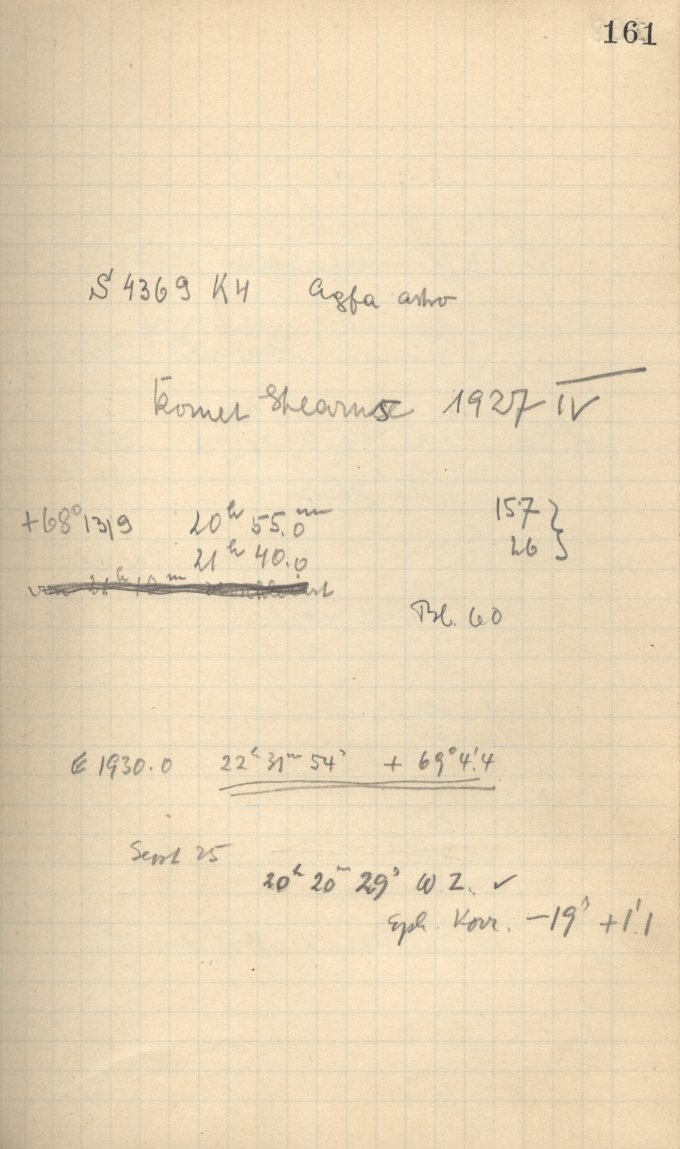 161
S 4369 K4 Agfa astro
Komet Stearns 1927 IV
+68° 1319 20ʰ 55.0ᵐ 157 }
21ʰ 40.0 26 }
von 21ʰ 10ᵐ
Bl. 60
1930.0 22ʰ 31ᵐ 54ˢ + 69° 4'.4
Sept 25
20ʰ 20ᵐ 29ˢ W Z. ✓
Eph. Korr. −19ˢ +1'.1